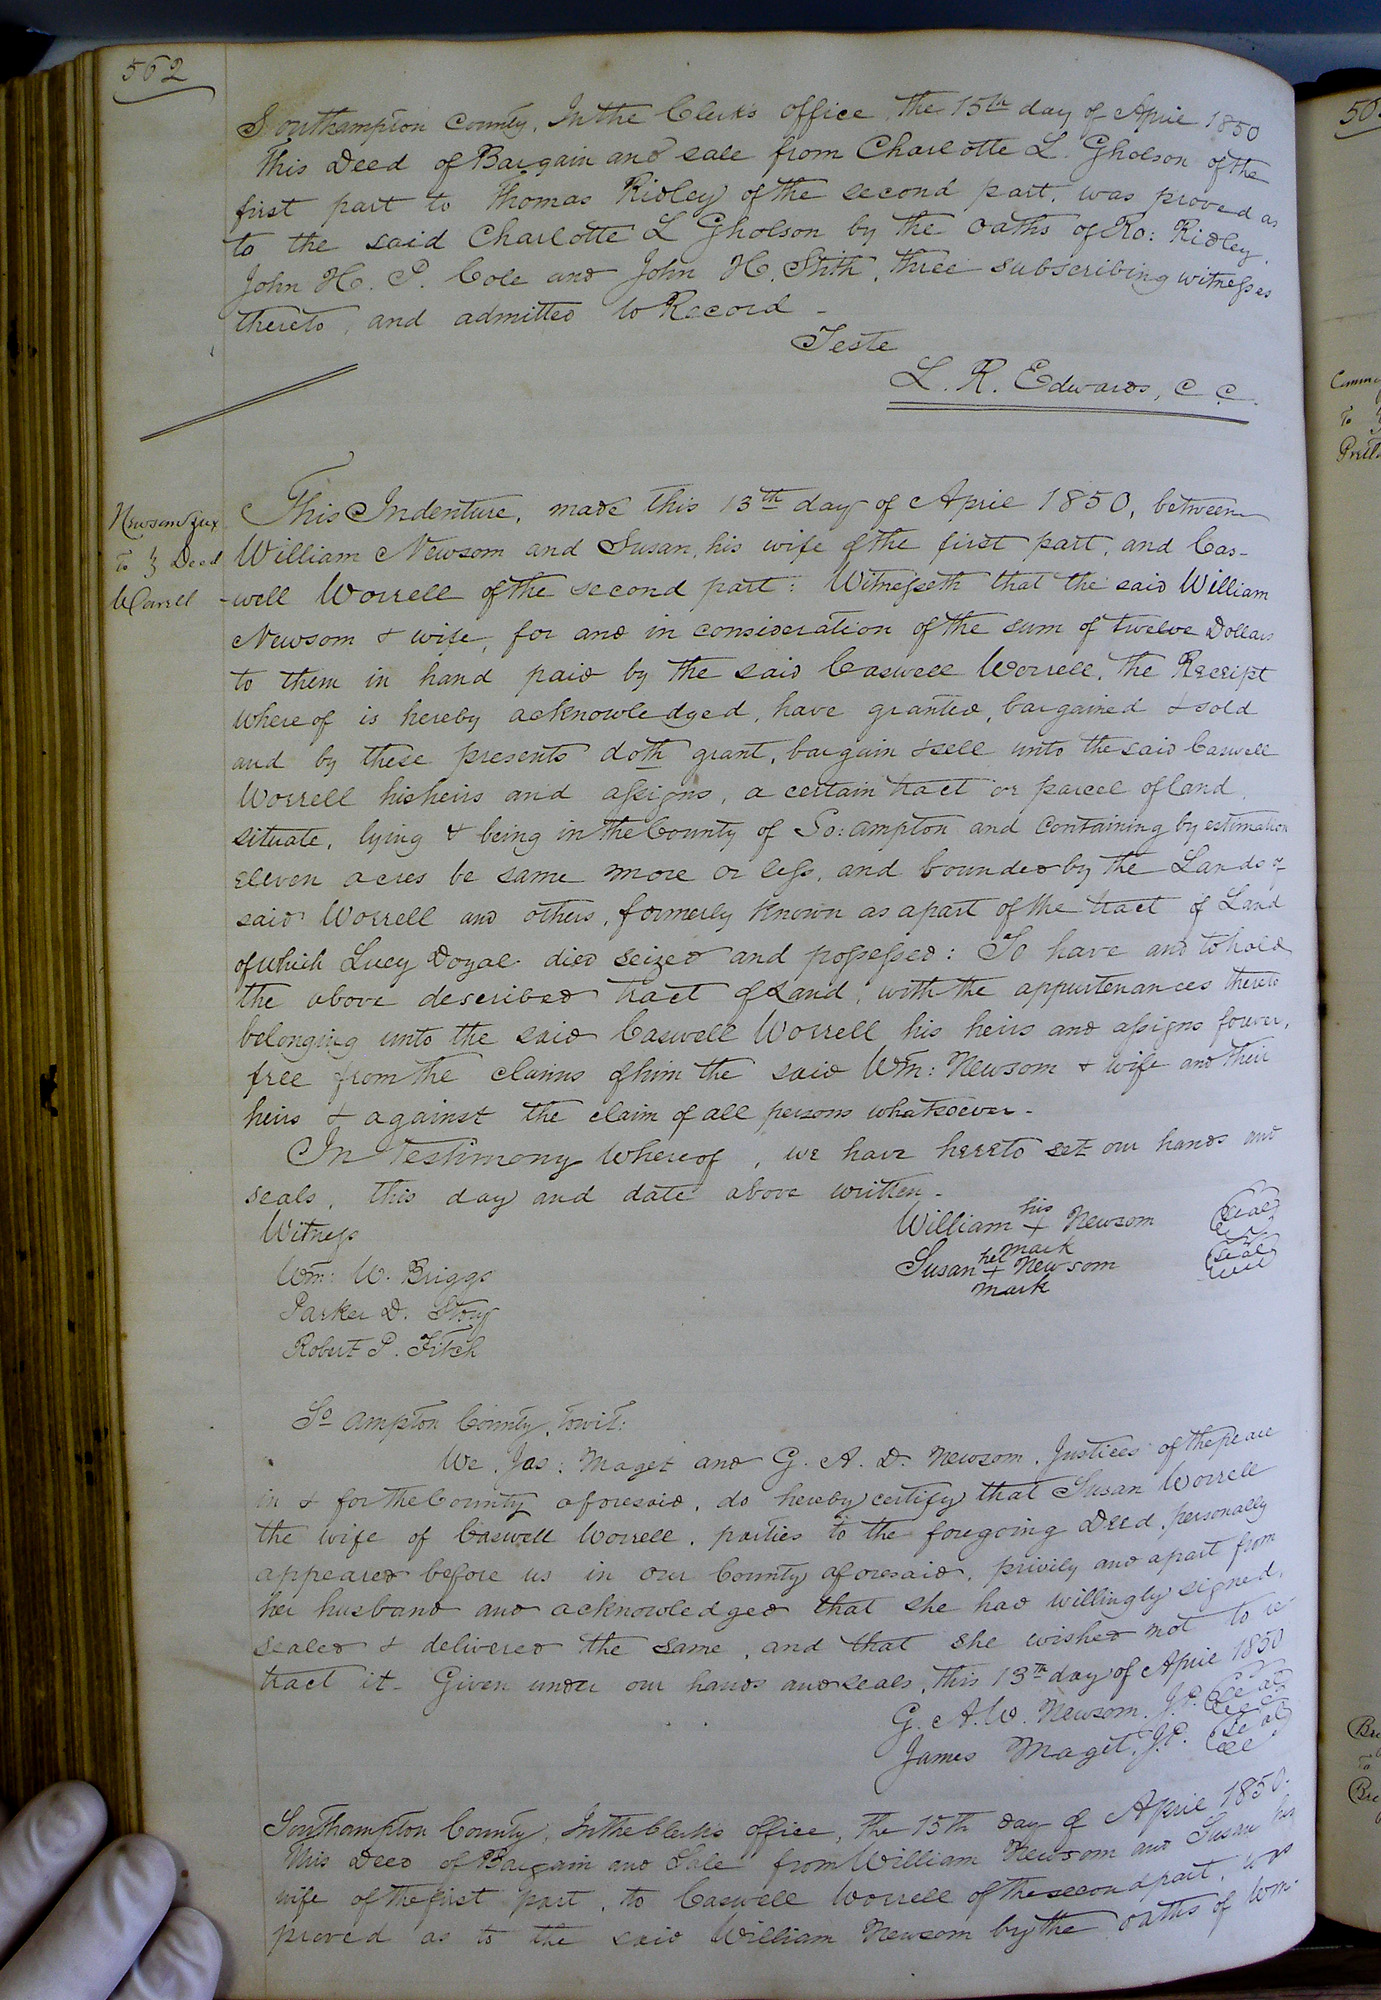 562
Southampton County, In the Clerk's Office, the 15th day of April 1850
This Deed of Bargain and sale from Charlotte L. Gholson of the
first part to Thomas Ridley of the second part, was proved as
to the said Charlotte L Gholson by the oaths of Ro: Ridley,
John H. P. Cole and John H. Stith, three subscribing witnesses
thereto, and admitted to Record -
Teste
L. R. Edwards, C C.
Newsom & ux
To } Deed
Worrell
This Indenture, made this 13th day of April 1850, between
William Newsom and Susan, his wife of the first part, and Cas-
-well Worrell of the second part: Witnesseth that the said William
Newsom & wife, for and in consideration of the sum of twelve Dollars
to them in hand paid by the said Caswell Worrell, the Receipt
whereof is hereby acknowledged, have granted, bargained & sold
and by these presents doth grant, bargain & sell unto the said Caswell
Worrell his heirs and assigns, a certain tract or parcel of land,
situate, lying & being in the County of So:ampton and containing by estimation
eleven acres be same more or less, and bounded by the Lands of
said Worrell and others, formerly known as a part of the tract of Land
of which Lucy Doyal died seized and possessed: To have and to hold
the above described tract of Land, with the appurtenances thereto
belonging unto the said Caswell Worrell his heirs and assigns forever,
free from the claims of him the said Wm: Newsom & wife and their
heirs & against the claim of all persons whatsoever -
In Testimony whereof, we have hereto set our hands and
seals, this day and date above written -
Witness
William his + mark Newsom (Seal)
Susan her + mark Newsom (Seal)
Wm: W. Briggs
Parker D. Story
Robert P. Fitch
So ampton County, towit:
We, Jas: Maget and G. A. D. Newsom, Justices of the peace
in & for the County aforesaid, do hereby certify that Susan Worrell
the wife of Caswell Worrell, parties to the foregoing Deed, personally
appeared before us in our County aforesaid, privily and apart from
her husband and acknowledged that she had willingly signed,
sealed & delivered the same, and that she wished not to re
tract it - Given under our hands and seals, this 13th day of April 1850
G. A. W. Newsom, J.P. (Seal)
James Maget, J.P. (Seal)
Southampton County, In the Clerks office, the 15th day of April 1850.
This Deed of Bargain and Sale from William Newsom and Susan his
wife of the first part, to Caswell Worrell of the second part, was
proved as to the said William Newsom by the oaths of Wm:
50
To
To